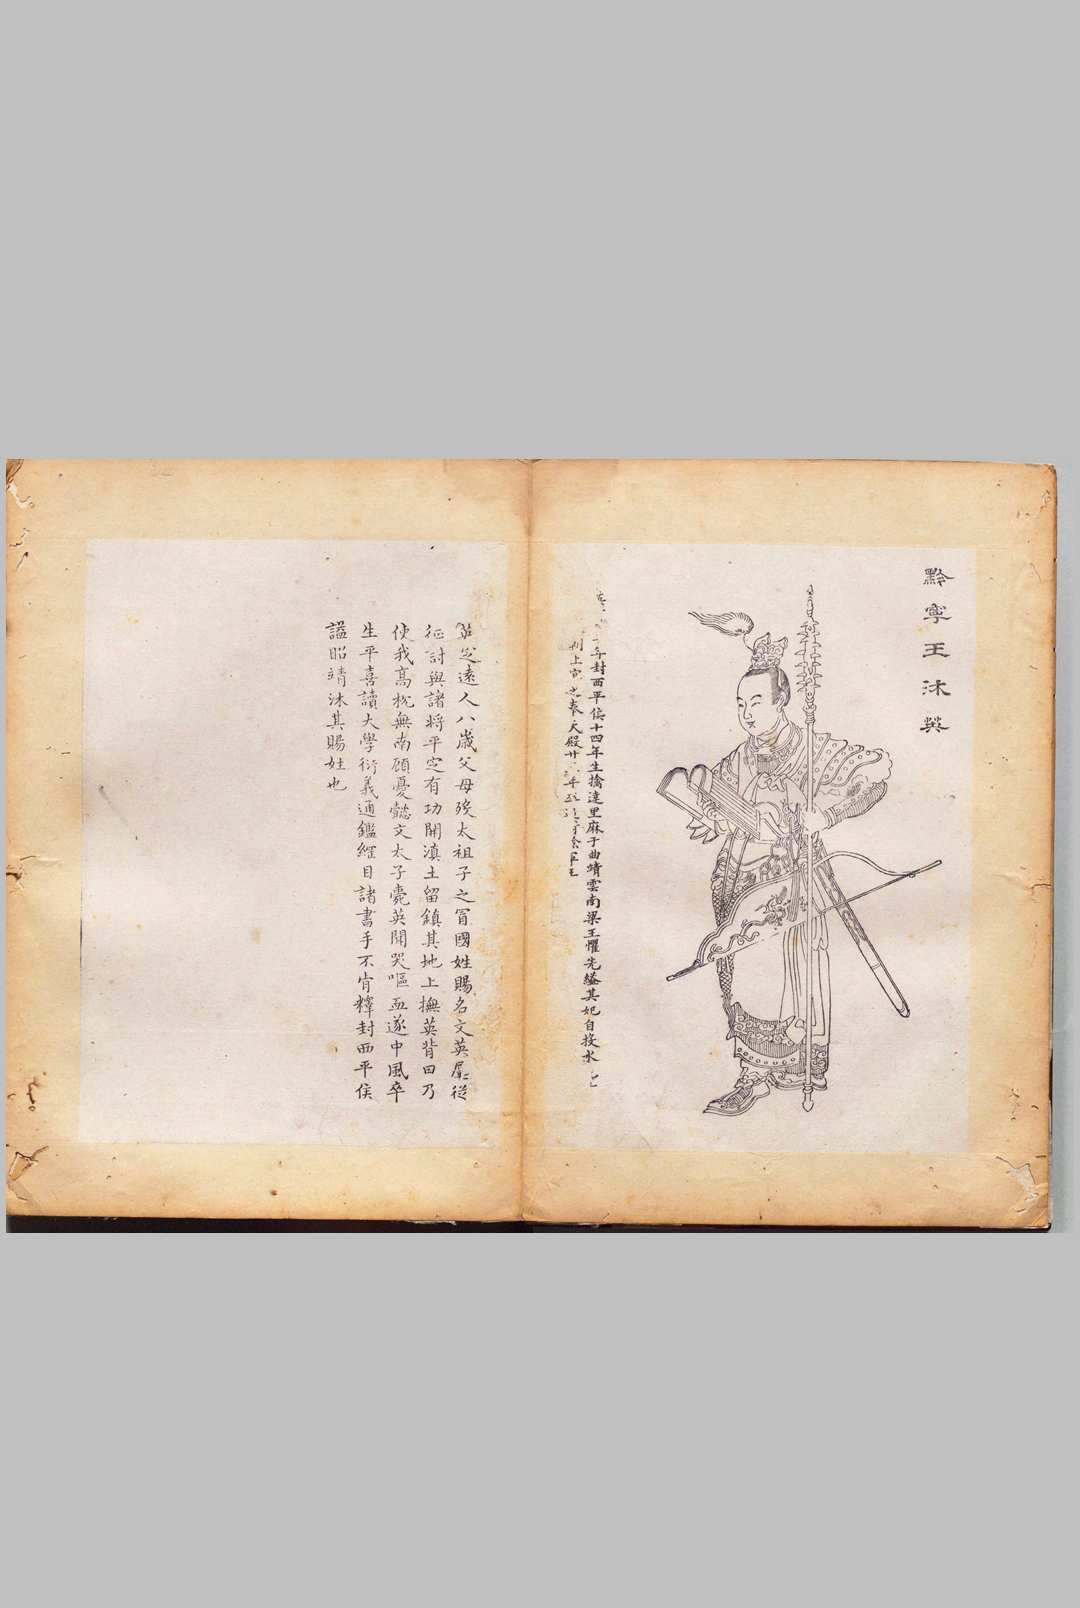 黔寧王沐英
年封西平侯十四年生擒達里麻于曲靖雲南梁王懼先縊其妃自投水
英定遠人八歲父母殁太祖子之冐國姓賜名文英屢從
征討與諸將平定有功開滇土留鎮其地上撫英背曰乃
使我高枕無南顧憂懿文太子薨英聞哭嘔血遂中風卒
生平喜讀大學衍義通鑑綱目諸書手不肯釋封西平侯
諡昭靖沐其賜姓也